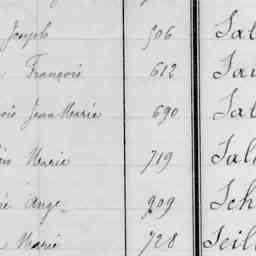 Joseph 506 Sal
François 612 Sau
Jean Marie 690 Sal
Marie 719 Sal
Ange 909 Sch
Marie 728 Seil